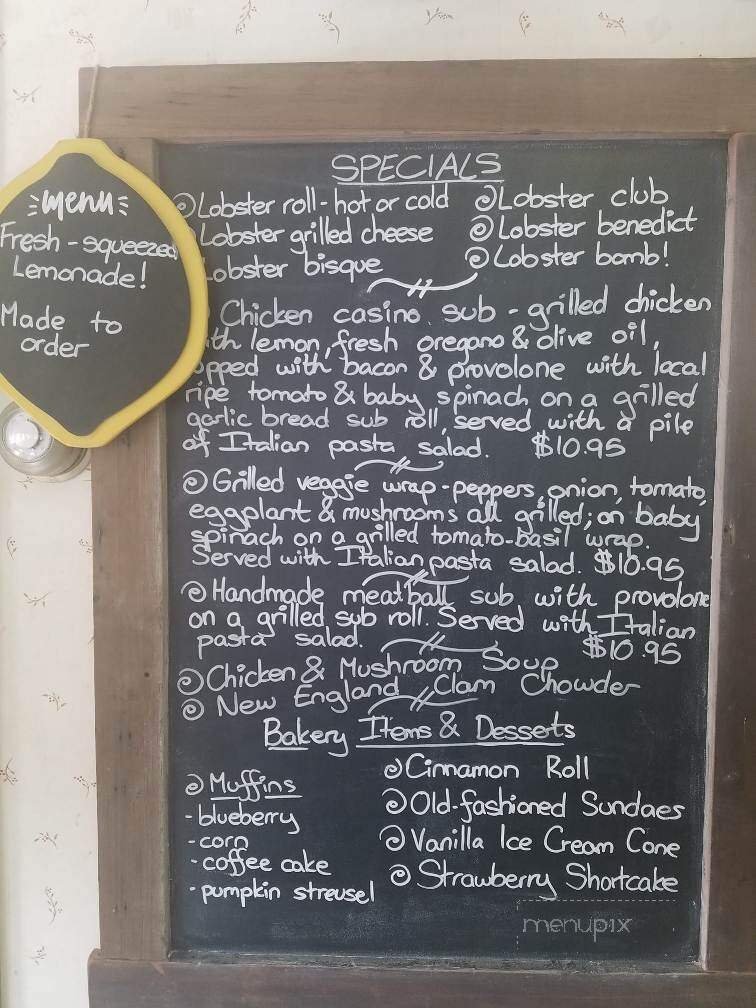 menu
Fresh-squeezed
Lemonade!
Made to
order
SPECIALS
Lobster roll-hot or cold
Lobster grilled cheese
Lobster bisque
Lobster club
Lobster benedict
Lobster bomb!
Chicken casino sub - grilled chicken
with lemon, fresh oregano & olive oil,
topped with bacon & provolone with local
ripe tomato & baby spinach on a grilled
garlic bread sub roll, served with a pile
of Italian pasta salad. $10.95
Grilled veggie wrap-peppers, onion, tomato,
eggplant & mushrooms all grilled; on baby
spinach on a grilled tomato-basil wrap.
Served with Italian pasta salad. $10.95
Handmade meatball sub with provolone
on a grilled sub roll. Served with Italian
pasta salad. $10.95
Chicken & Mushroom Soup
New England Clam Chowder
Bakery Items & Desserts
Muffins
- blueberry
- corn
- coffee cake
- pumpkin streusel
Cinnamon Roll
Old-fashioned Sundaes
Vanilla Ice Cream Cone
Strawberry Shortcake
menupix